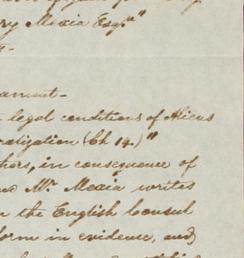 ry Mexia Esq^re"
ament-
legal conditions of Aliens
ralization (Ch 14.)"
hors, in consequence of
Mr. Mexia writes
the English Consul
form in evidence, and